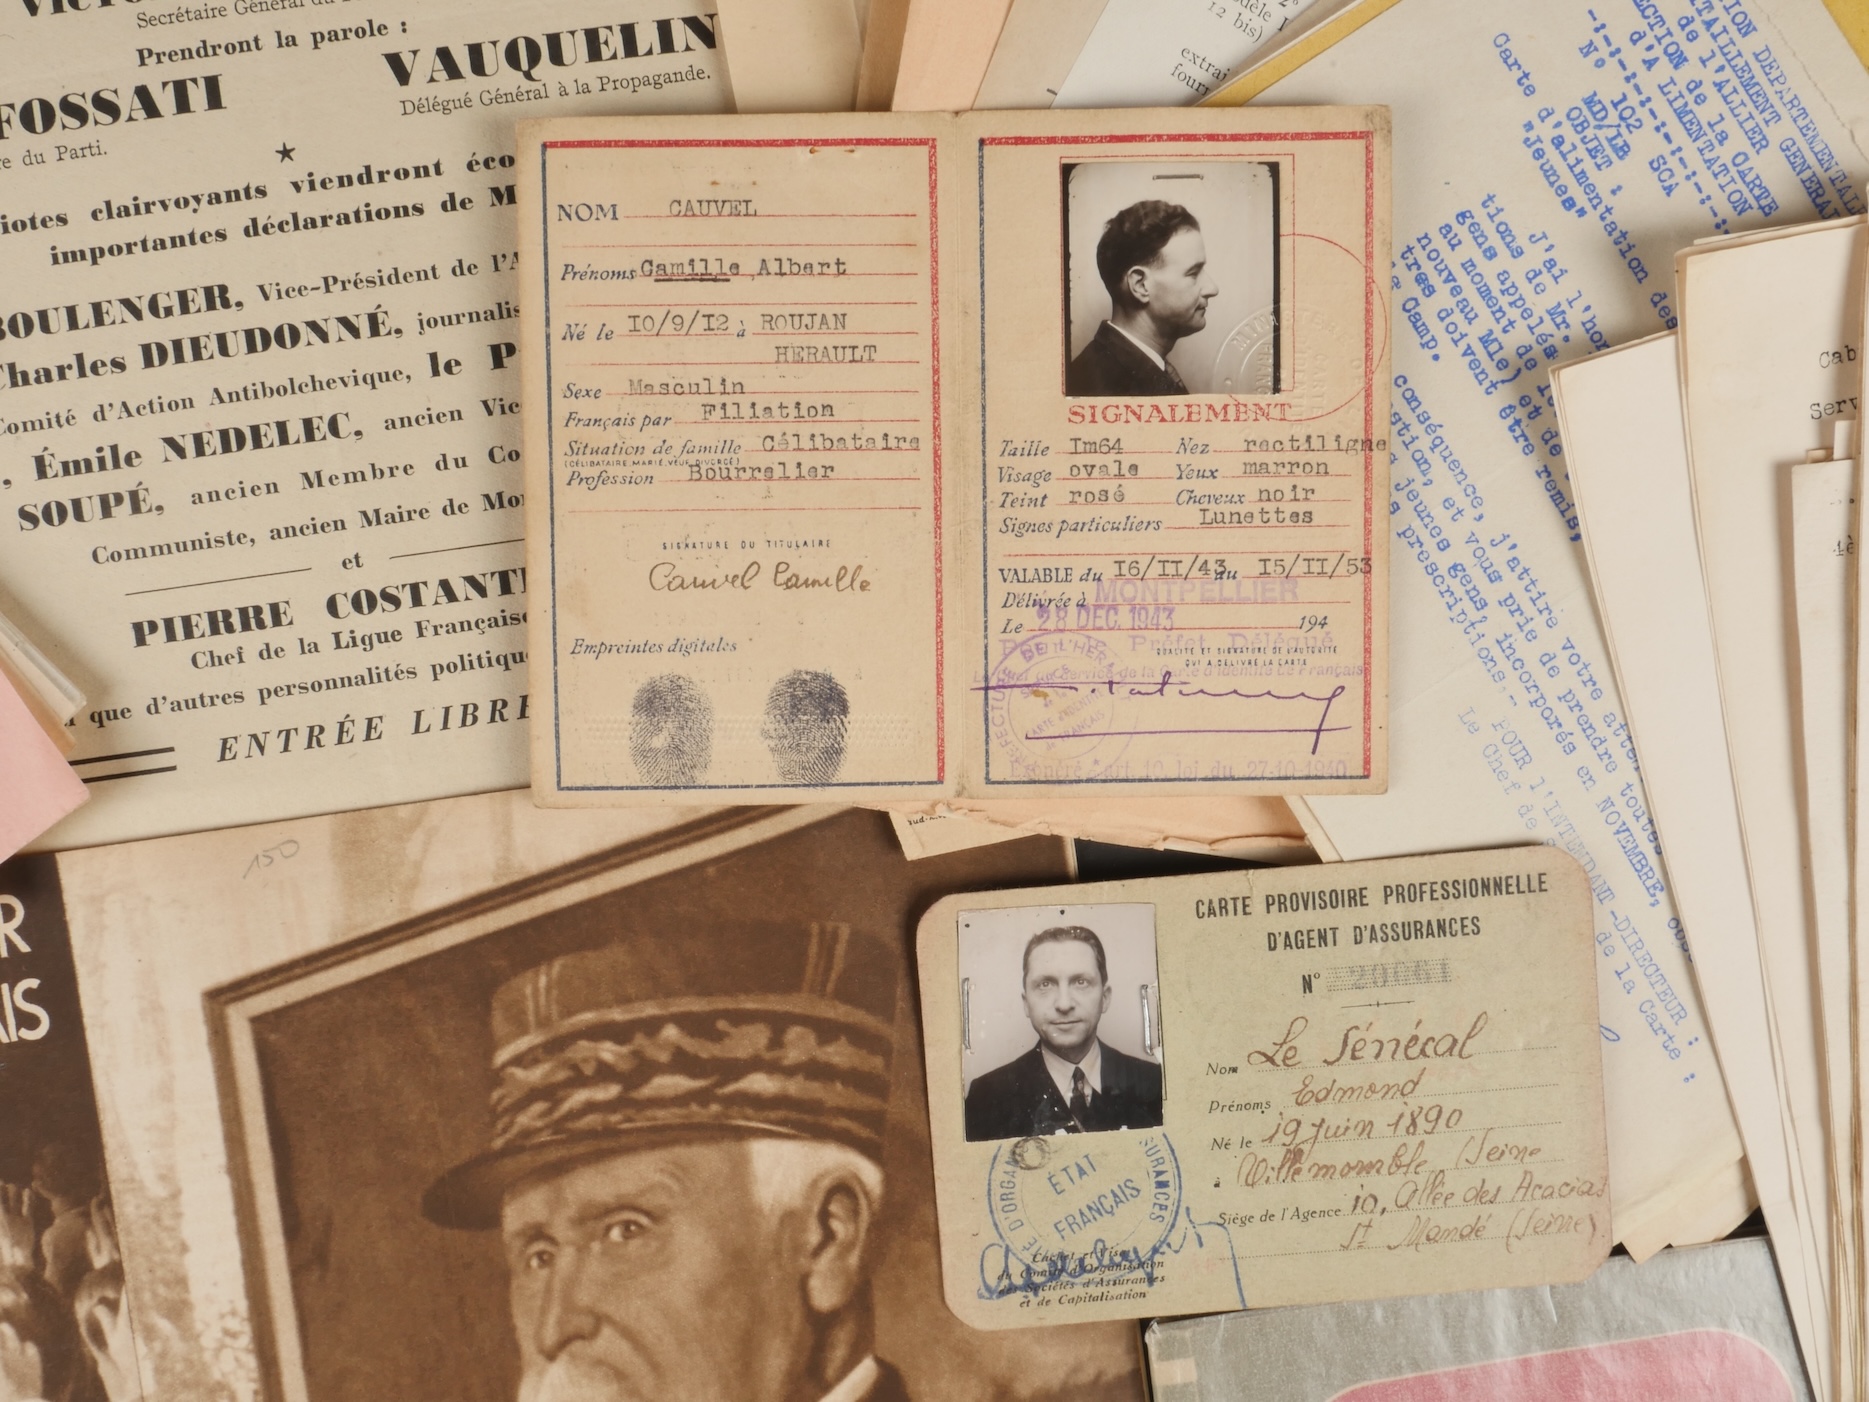 Secrétaire Général du
Prendront la parole :
FOSSATI
VAUQUELIN
Délégué Général à la Propagande.
re du Parti.
iotes clairvoyants viendront éco
importantes déclarations de M
BOULENGER, Vice-Président de l'A
Charles DIEUDONNÉ, journalis
Comité d'Action Antibolchevique, le P
, Émile NEDELEC, ancien Vic
SOUPÉ, ancien Membre du Co
Communiste, ancien Maire de Mo
et
PIERRE COSTANTI
Chef de la Ligue Française
que d'autres personnalités politiqu
ENTRÉE LIBRE
NOM CAUVEL
Prénoms Camille Albert
Né le 10/9/12 à ROUJAN
HERAULT
Sexe Masculin
Français par Filiation
Situation de famille Célibataire
(CÉLIBATAIRE, MARIÉ, VEUF, DIVORCÉ)
Profession Bourrelier
SIGNATURE DU TITULAIRE
Cauvel Camille
Empreintes digitales
SIGNALEMENT
Taille Im64 Nez rectiligne
Visage ovale Yeux marron
Teint rosé Cheveux noir
Signes particuliers Lunettes
VALABLE du 16/11/43 au 15/11/53
Délivrée à MONTPELLIER
Le 28 DEC. 1943 194
Préfet Délégué
QUALITÉ ET SIGNATURE DE L'AUTORITÉ
QUI A DÉLIVRÉ LA CARTE
Service de la Carte d'Identité de Français
Exonéré - art. 10. loi du 27-10-1940
12 bis)
extrai
fourn
TION DEPARTEMENTALE
de l'ALLIER
SECTION de la CARTE
d'A LIMENTATION
-:-:-:-:-:-:-:-
N° 102 SCA
MD/LB
OBJET :
Carte d'alimentation des
"Jeunes"
J'ai l'hon
tions de Mr.
gens appelés
au moment de
nouveau Mle) et de
tres doivent être remis,
Camp.
conséquence, j'attire votre atten
stion, et vous prie de prendre toutes
jeunes gens, incorporés en NOVEMBRE,
prescriptions.-
POUR l'INTENDANT-DIRECTEUR :
Le Chef de la Carte :
Cab
Serv
150
R
IS
CARTE PROVISOIRE PROFESSIONNELLE
D'AGENT D'ASSURANCES
N° 20061
Nom Le Sénécal
Prénoms Edmond
Né le 19 juin 1890
à Villemomble (Seine
Siège de l'Agence 10, Allée des Acacias
St Mandé (Seine)
ÉTAT
FRANÇAIS
Cachet et Visa
du Comité d'Organisation
des Sociétés d'Assurances
et de Capitalisation